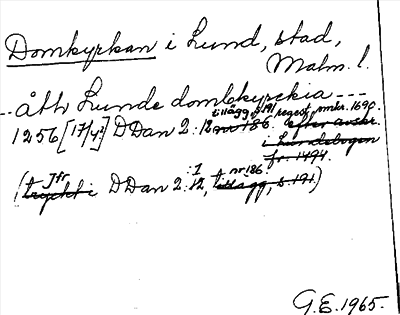 Domkyrkan i Lund, stad,
Malm. l.
-- åth Lunde domkyrkia ---
tillägg s. 191, regest omkr. 1690.
1256 [17/4] DDan 2:12 nr 186. efter avskr.
i Lundebogen
fr. 1494.
Jfr :1 nr 186.
(tryckt i DDan 2:12, tillägg, s. 191)
G.E. 1965.